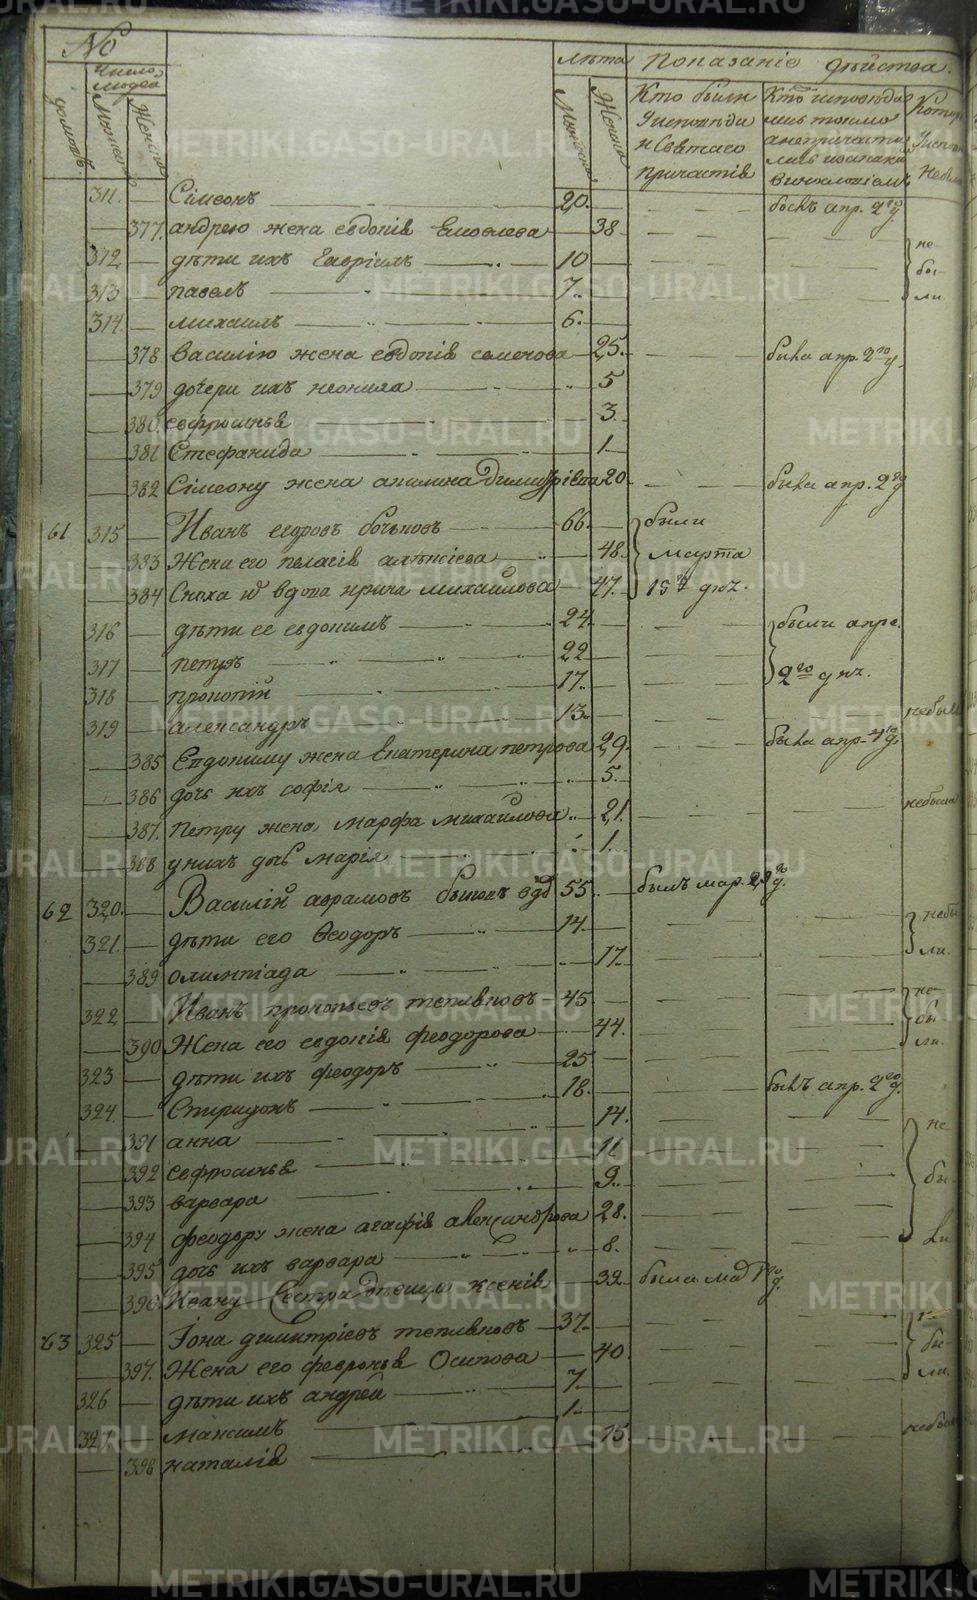 №
лѣта показаніе дѣйства.
Число людей
домовъ. Мужеска Женска
Мужеска Женска
Кто были Кто исповѣда
у исповѣди лись токмо
и Святаго анепричасти
причастія лись
311. — Сімеонъ — 20. — — — былъ апр. 2го д.
— 377. андрею жена евдокія — 38 — — —
312 — дѣти ихъ Гавріилъ — 10 — не
313 — павелъ — 7. — бы
314. — михаилъ — 6. — ли.
— 378 василію жена евдокія семенова — 25. — — была апр. 2го д.
— 379 дочери ихъ неонила — 5
— 380. евфросинья — 3.
— 381 Стефанида — 1.
— 382 Сімеону жена акилина Димитріева 20 — — была апр. 2го д
61 315 — Иванъ — 66. — были
— 383 Жена его пелагія — 48. марта
— 384 Сноха и вдова ирина михайлова — 47. 15го дня.
316 — дѣти ее евдокимъ — 24. — — были апре.
317 — петръ — 22 — 2го дня.
318 — прокопій — 17. —
319 — александръ — 13. — небылъ
— 385 Евдокиму жена Екатерина петрова 29. — была апр. 4го д.
— 386 дочь ихъ софія — 5.
— 387. петру жена марфа михайлова 21. — — — небыла
— 388 у нихъ дочь марія — 1.
62 320. — Василій аврамовъ вдов 55. — былъ мар. 29го д.
321. — дѣти его Ѳеодоръ — 14. — — — небы
— 389 олимпіада — 17. ли.
322 — Иванъ прокопьевъ тепляковъ — 45 — — — не
— 390 Жена его евдокія феодорова — 44. — бы
323 — дѣти ихъ феодоръ — 25 — ли.
324. — Спиридонъ — 18. — — былъ апр. 2го д.
— 391 анна — 14. — — — не
— 392 евфросинья — 11
— 393 варвара — 9. — бы
— 394 феодору жена агафія александрова 28. —
— 395 дочь ихъ варвара — 8. — ли
— 396 Ивану Сестра дѣвица ксенія — 39 — была ма 1го д.
63 325 — Іона димитріевъ тепляковъ — 37. — — не
— 397. Жена его февронья Осипова — 40. — бы
326 — дѣти ихъ андрей — 7 — ли.
327 — максимъ — 1. —
— 398 наталія — 15 — — — небыла
METRIKI.GASO-URAL.RU